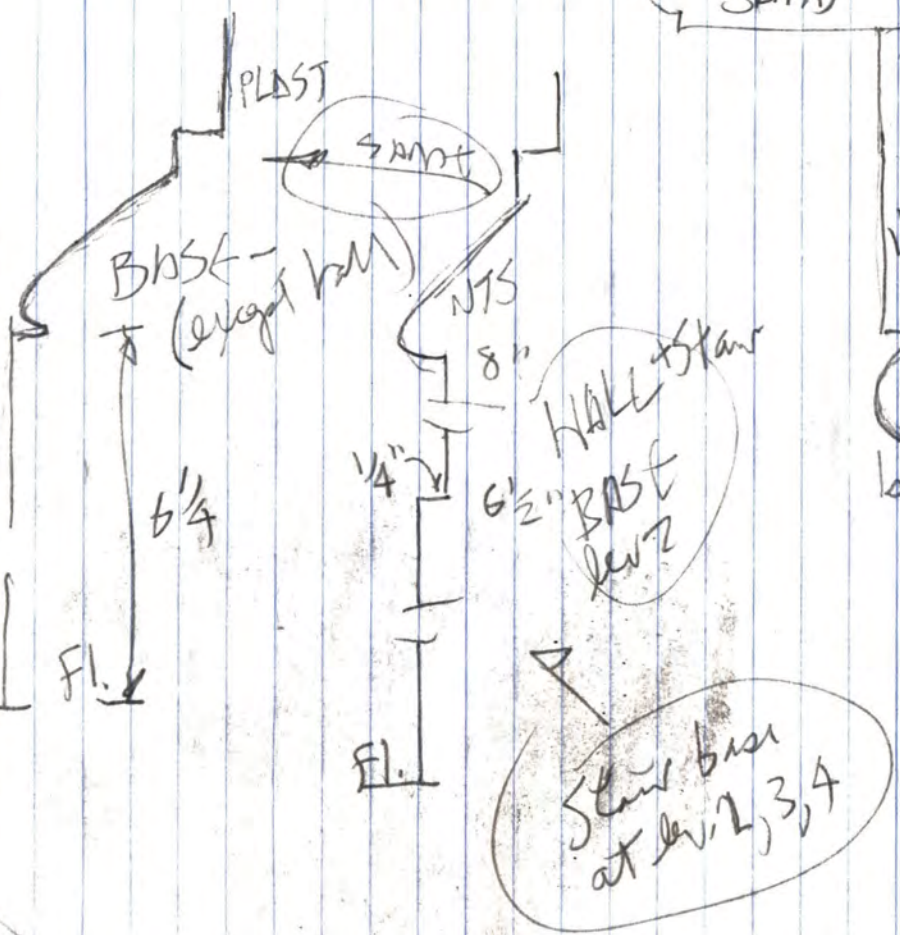 PLAST
SAME
BASE-
(except hall)
NTS
8"
HALL + Stair
BASE
lev 2
1/4"
6 1/2"
6 1/4
Fl.
Fl.
Stair base
at lev. 2, 3, 4